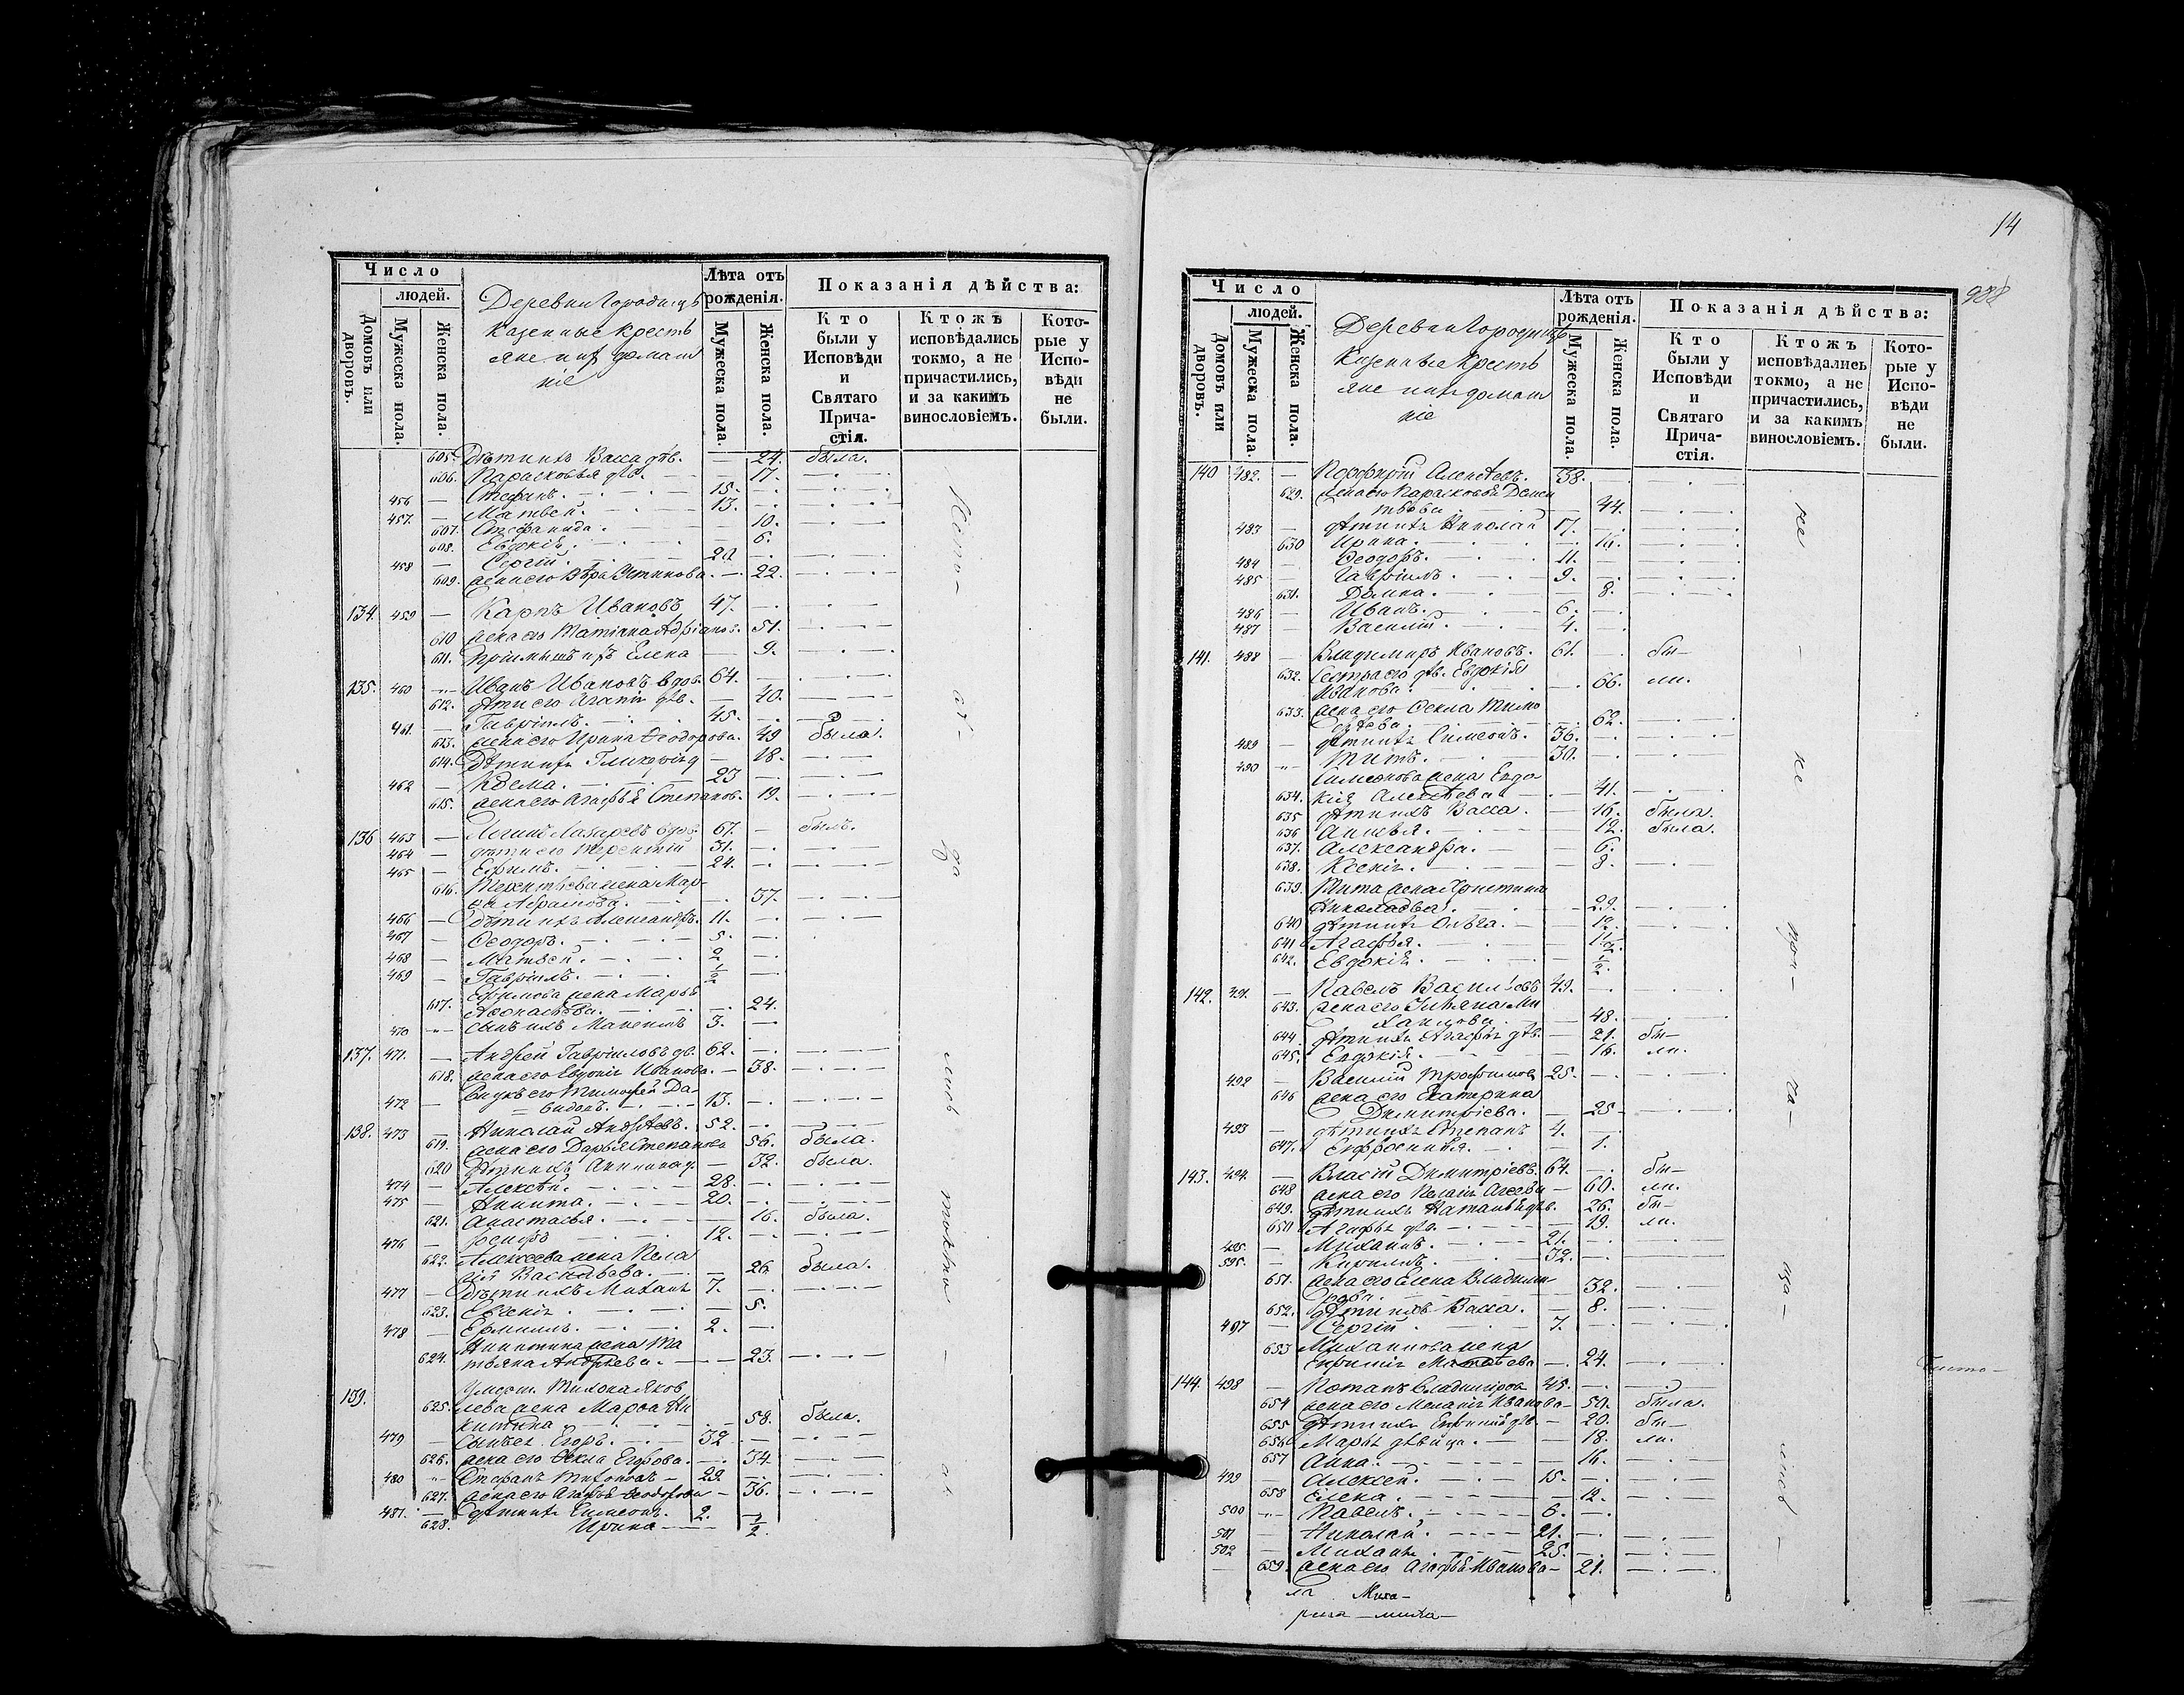 Число
людей.
Домовъ или дворовъ.
Мужеска пола.
Женска пола.
Деревни Городищъ
казенные кресть
яне и ихъ домаш
ніе
Лѣта отъ
рожденія.
Мужеска пола.
Женска пола.
Показанія дѣйства:
Кто
были у
Исповѣди
и
Святаго
Прича-
стія.
Ктожъ
исповѣдались
токмо, а не
причастились,
и за какимъ
винословіемъ.
Кото-
рые у
Испо-
вѣди
не
были.
605. Дѣти ихъ Васса дѣв. — 24. была.
606. Парасковья дѣв. — 17.
456 — Стефанъ. 15.
457. — Матвей. 13.
607. Стефанида. 10.
608. Евдокія. 6.
458 — Сергій. 20
609. жена его Вѣра Устинова. — 22.
134. 459 — Карпъ Ивановъ 47.
610 жена его Татіана Адріанов. 51.
611. Пріимышъ ихъ Елена — 9.
135. 460 Иванъ Ивановъ вдов. 64.
612. дѣти его Агапія дѣв. — 40.
461. — Гавріилъ. 45.
613. жена его Ирина Ѳеодорова. 49 была.
614. Дѣти ихъ Гликерія — 18.
462 — Козма. 23
615. жена его Агафья Степанов. 19.
136 463 — Логинъ Лазаревъ вдов. 67. былъ.
464 — дѣти его Терентій 31.
465 — Ефимъ. 24.
616. Терентьева жена Мар-
ѳа Абрамова. 37.
466 — дѣти ихъ Александръ. 11.
467 — Ѳеодоръ. 5.
468 — Матвей. 2
469 — Гавріилъ. ½
617. Ефимова жена Марья
Аѳонасьева. 24.
470 сынъ ихъ 3.
137. 471. — Андрей Гавріиловъ дв. 62.
618. жена его Евдокія Иванова. — 38.
472 — Внукъ его Тимофей Да-
видовъ. 13.
138. 473 — Николай Андрѣевъ. 52.
619. жена его Дарья Степанова 56. была.
620 Дѣти ихъ 32. была.
474 — Алексѣй. 28.
475 — Никита. 20.
621. Анастасья. 16. была.
476 — Іосифъ 12.
622. Алексеева жена Пела
гія Васильева. 26 была.
477 — Дѣти ихъ Михаилъ 7.
623. Евгенія 5.
478 — Ермилъ. 2.
624. Никитина жена Та
тьяна Андрѣева. 23.
139.
625. Умерш. Тихона Яков
лева жена Марѳа Ни
китина 58. была.
479 — Сынъ ея Егоръ. 32
626. жена его Ѳекла Егорова. 34.
480 Стефанъ Тихоновъ — 29
627. жена его Агафья Ѳеодорова — 36.
481. — дѣти ихъ Симеонъ. 2.
628. Ирина — ½
14
988
Число
людей.
Домовъ или дворовъ.
Мужеска пола.
Женска пола.
Деревни Городищъ
Казенные кресть
яне и ихъ домаш
ніе
Лѣта отъ
рожденія.
Мужеска пола.
Женска пола.
Показанія дѣйства:
Кто
были у
Исповѣди
и
Святаго
Прича-
стія.
Ктожъ
исповѣдались
токмо, а не
причастились,
и за какимъ
винословіемъ.
Кото-
рые у
Испо-
вѣди
не
были.
140 482. — Порфирій Алексѣевъ. 38.
629. жена его Парасковья Демен
тьева 44.
483 — дѣти ихъ Николай 17.
630 Ирина. 14.
484 — Ѳеодоръ. 11.
485 — Гавріилъ. 9.
631. Домна. 8.
486 — Иванъ. 6.
487 — Василій. 4.
141. 488 — Владимиръ Ивановъ. 61. бы-
632. Сестра его дѣв. Евдокія
Иванова. 66. ли.
633. жена его Ѳекла Тимо
фѣева. 62.
489 — дѣти ихъ Симеонъ. 36.
490 Титъ. 30.
Симеонова жена Евдо
634. кія Алексѣева 41.
635 дѣти ихъ Васса. 16. была.
636 Анисья. 12. была.
637. Александра. 6.
638. Ксенія. 8.
639. Тита жена Христина
Николаева. 29.
640 дѣти ихъ Ольга. 12.
641 Агафья.
642. Евдокія. ½.
142. 491. — Павелъ Васильевъ 49.
643. жена его Ульяна Ми
хаилова. 48.
644 дѣти ихъ Агафья дѣв. — 21. бы-
645. Евдокія. 16. ли.
492 — Василій Трофимовъ 25.
646 жена его Екатерина
Димитріева. 25
493 — дѣти ихъ Степанъ 4.
647. Евфросинія. 1.
143. 494. — Власій Димитріевъ. 64. бы-
648 жена его Пелагія — 60. ли.
649. дѣти ихъ Наталья дѣв. 26. бы-
650 Агафья дѣв. 19. ли.
495. — Михаилъ. 21.
595. — Кириллъ. 32.
651. жена его Елена Владими
рова. 32.
652. дѣти ихъ Васса. 8.
497 — Сергій 7.
653 Михаилова жена
Евфимія Матвѣева 24.
144. 498 — Потапъ Владиміровъ 45.
654 жена его Меланія Иванова — 50. была.
655 дѣти ихъ Евфимія дѣв — 20. бы-
656 Марья дѣвица. 18. ли.
657 Анна. 16.
499 — Алексей. 15.
658 Елена. 12.
500 Павелъ. 6.
501 — Николай. 21.
502 — Михаилъ 25.
659. жена его Агафья Иванова — 21.